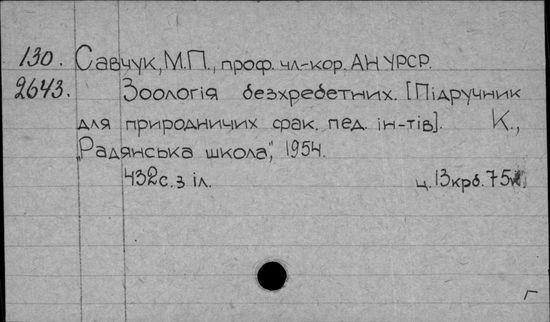 130. Савчук, М.П., проф. чл-кор. АН УРСР.
2643. Зоологія безхребетних. [Підручник
для природничих фак. пед. ін-тів]. К.,
„Радянська школа", 1954.
432 с. з іл. ц. 13 крб. 75 к.
Г